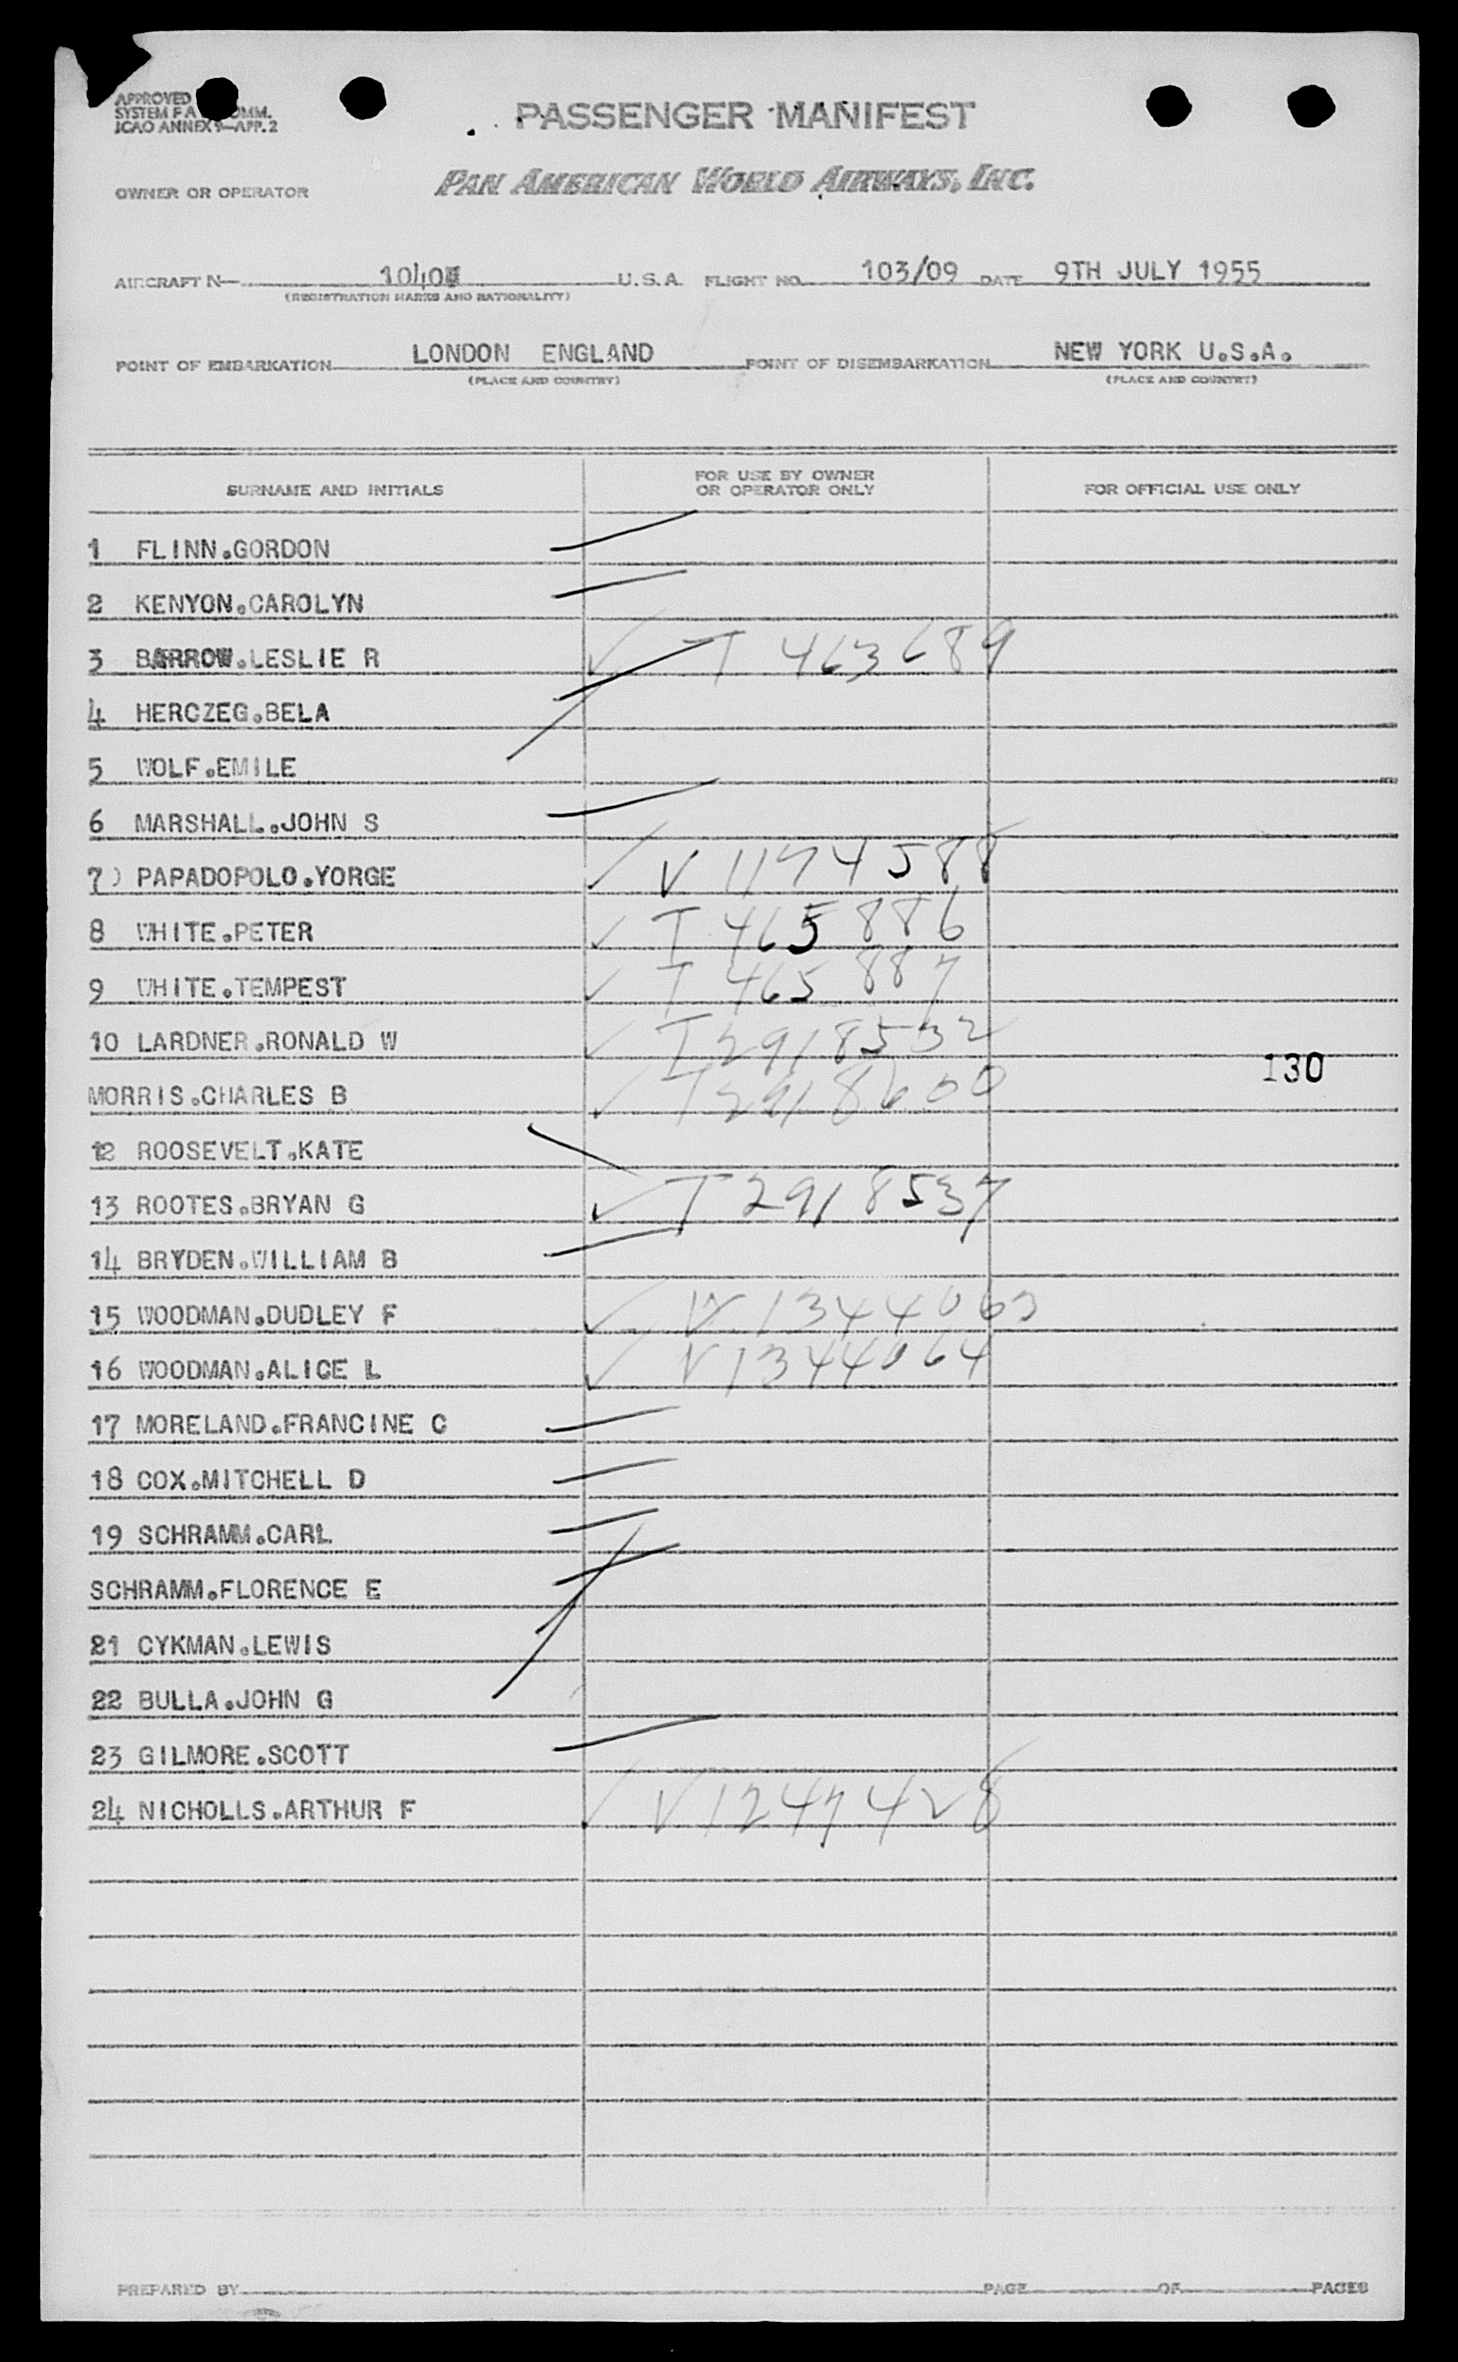 APPROVED
SYSTEM
ICAO ANNEX 9—APP. 2
PASSENGER MANIFEST
OWNER OR OPERATOR PAN AMERICAN WORLD AIRWAYS, INC.
AIRCRAFT N— U.S.A. FLIGHT NO. 103/09 DATE 9TH JULY 1955
(REGISTRATION MARKS AND NATIONALITY)
POINT OF EMBARKATION LONDON ENGLAND POINT OF DISEMBARKATION NEW YORK U.S.A.
(PLACE AND COUNTRY) (PLACE AND COUNTRY)
SURNAME AND INITIALS FOR USE BY OWNER OR OPERATOR ONLY FOR OFFICIAL USE ONLY
1 FLINN.GORDON
2 KENYON.CAROLYN
3 BARROW.LESLIE R ✓ T 463689
4 HERCZEG.BELA
5 WOLF.EMILE
6 MARSHALL.JOHN S
7) PAPADOPOLO.YORGE ✓ V 1174588
8 WHITE.PETER ✓ T 465886
9 WHITE.TEMPEST ✓ T 465887
10 LARDNER.RONALD W ✓ T 2918532
130
MORRIS.CHARLES B ✓ T 2918600
12 ROOSEVELT.KATE
13 ROOTES.BRYAN G ✓ T 2918537
14 BRYDEN.WILLIAM B
15 WOODMAN.DUDLEY F ✓ V 1344063
16 WOODMAN.ALICE L ✓ V 1344064
17 MORELAND.FRANCINE C
18 COX.MITCHELL D
19 SCHRAMM.CARL
SCHRAMM.FLORENCE E
21 CYKMAN.LEWIS
22 BULLA.JOHN G
23 GILMORE.SCOTT
24 NICHOLLS.ARTHUR F ✓ V 1247428
PREPARED BY PAGE OF PAGES